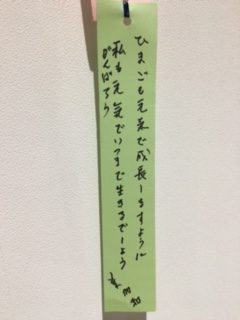 ひまごも元気で成長しますように
私も元気でいつまで生きるでしょう
がんばろう